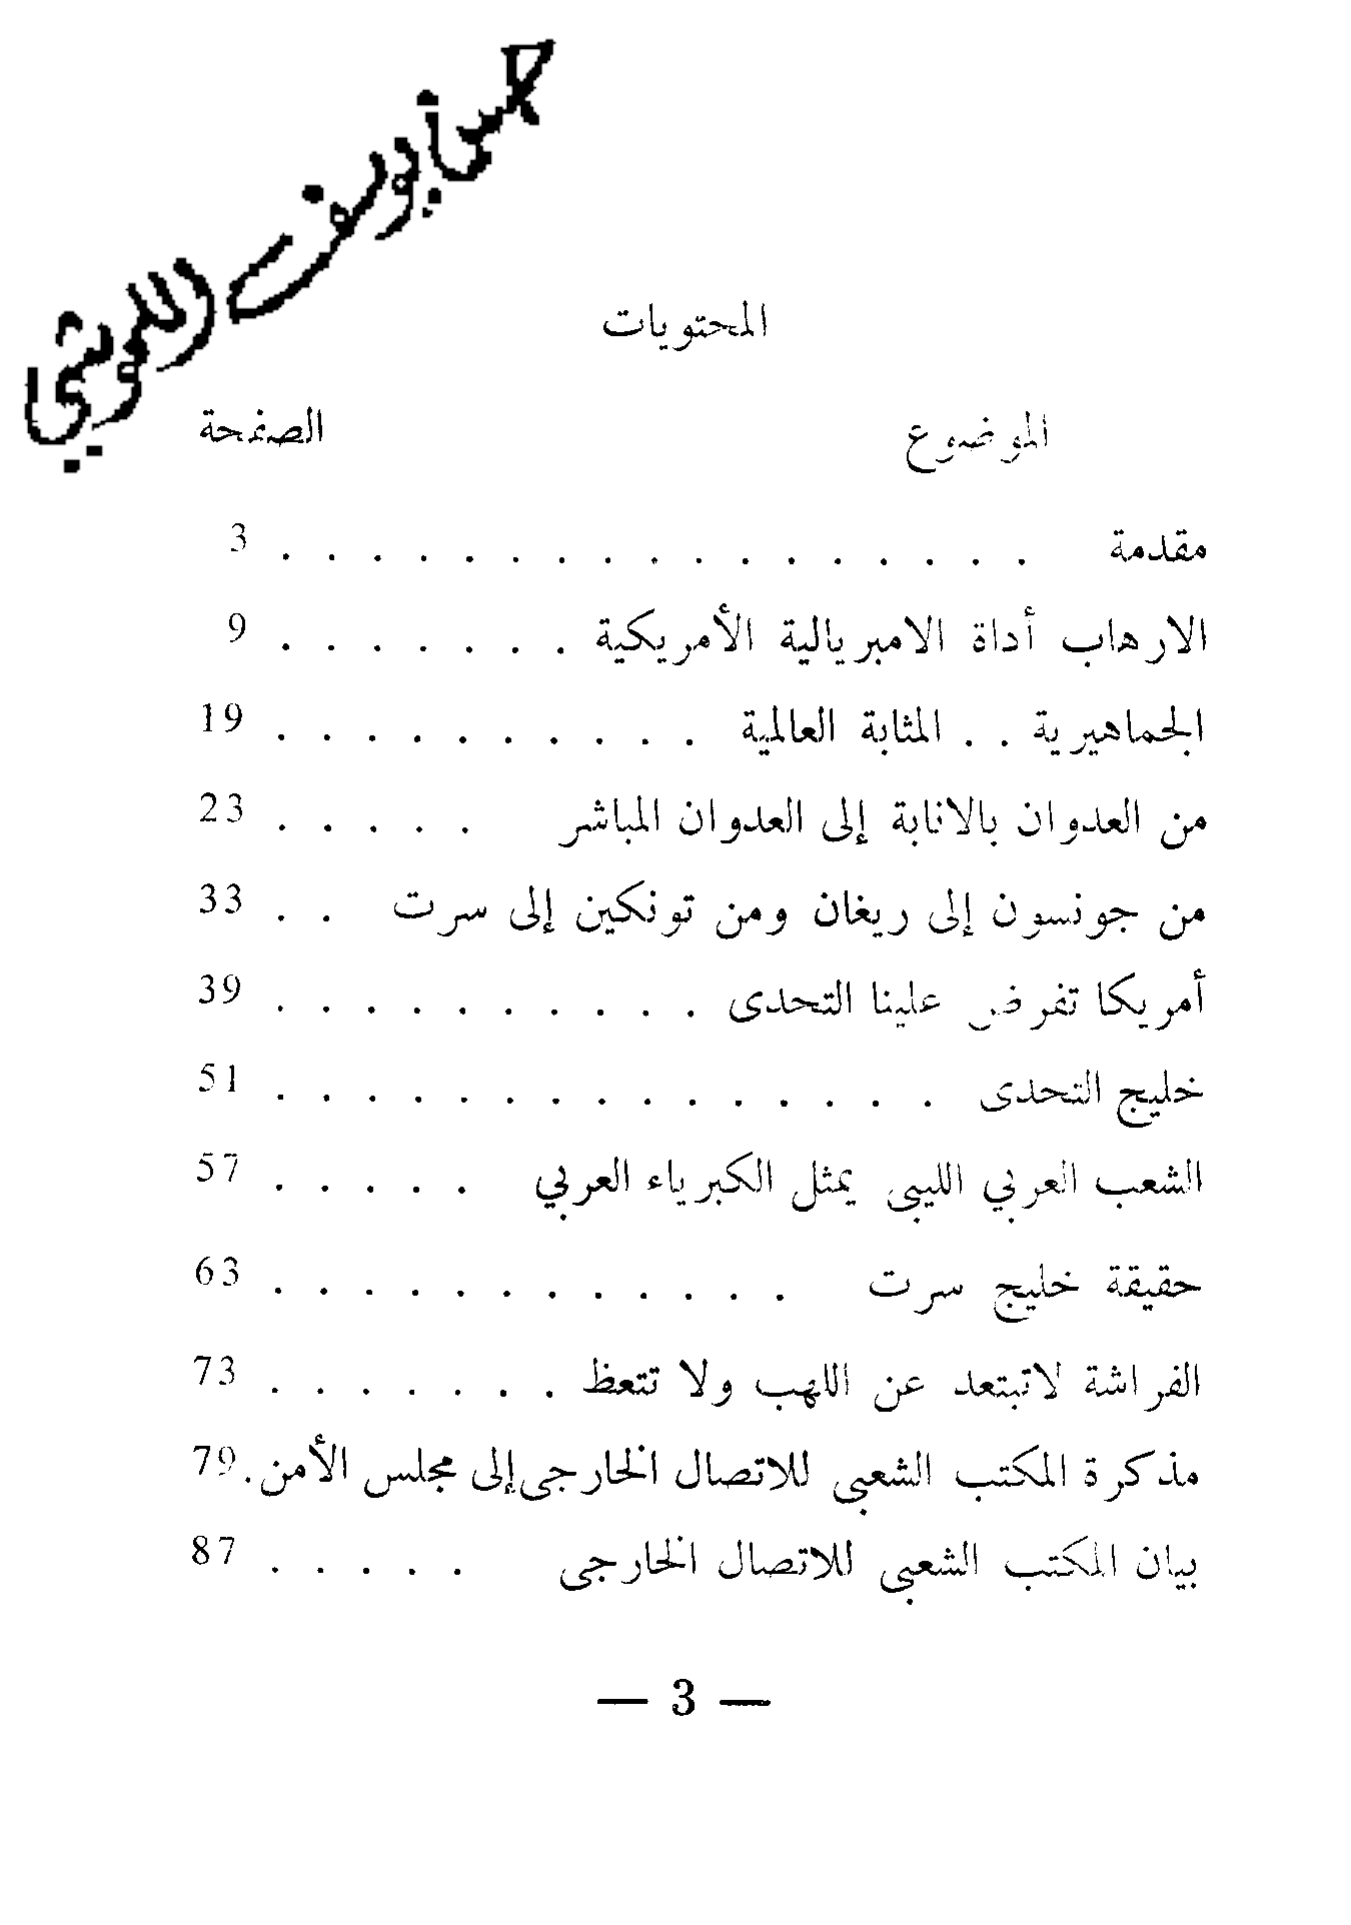 حسن يوسف اللموشي
المحتويات
الموضوع الصفحة
مقدمة . . . . . . . . . . . . . . . . . 3
الارهاب أداة الامبريالية الأمريكية . . . . . . . 9
الجماهيرية . . المثابة العالمية . . . . . . . . . . 19
من العدوان بالانابة إلى العدوان المباشر . . . . . 23
من جونسون إلى ريغان ومن تونكين إلى سرت . . 33
أمريكا تفرض علينا التحدى . . . . . . . . . . 39
خليج التحدى . . . . . . . . . . . . . . . 51
الشعب العربي الليبى يمثل الكبرياء العربي . . . . . 57
حقيقة خليج سرت . . . . . . . . . . . . 63
الفراشة لاتبتعد عن اللهب ولا تتعظ . . . . . . . 73
مذكرة المكتب الشعبى للاتصال الخارجى إلى مجلس الأمن . 79
بيان المكتب الشعبى للاتصال الخارجى . . . . . 87
— 3 —